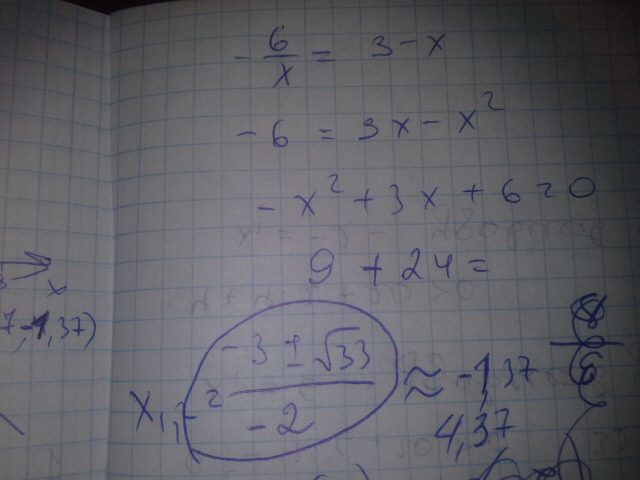 - 6/x = 3 - x
- 6 = 3x - x²
- x² + 3x + 6 = 0
9 + 24 =
7, -1,37)
x
x₁,₂ = (-3 ± √33)/(-2) ≈ -1,37
4,37